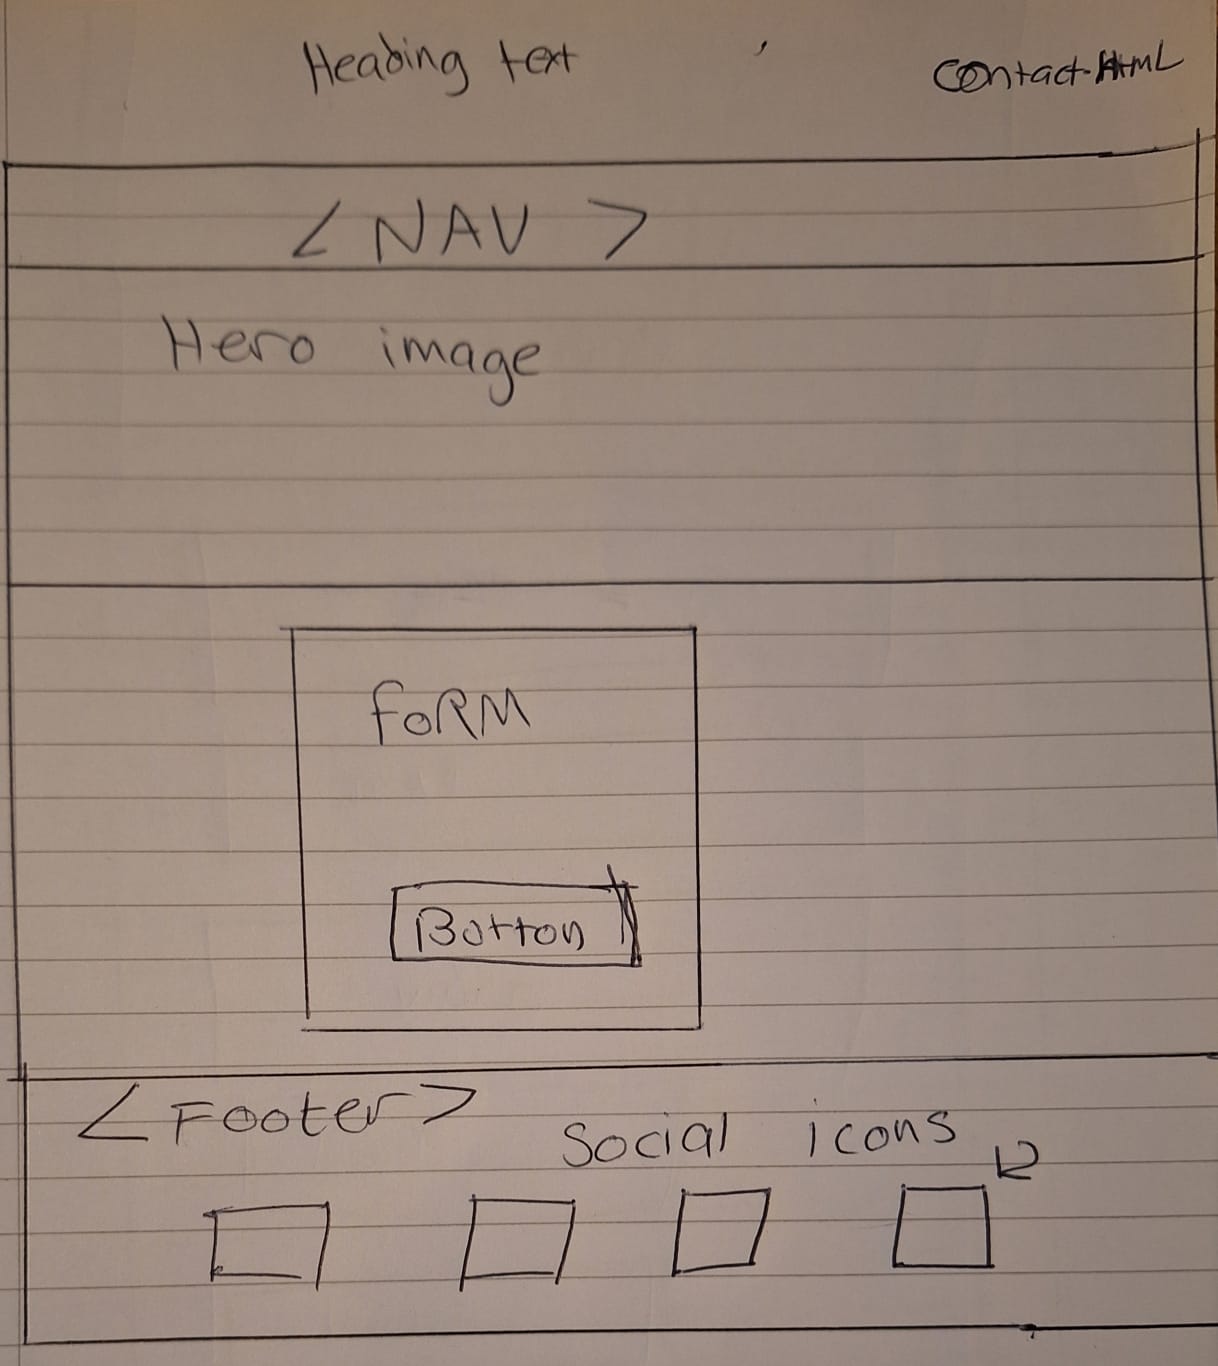 Heading text
Contact.HTML
< NAV >
Hero image
FORM
Button
<Footer>
Social icons